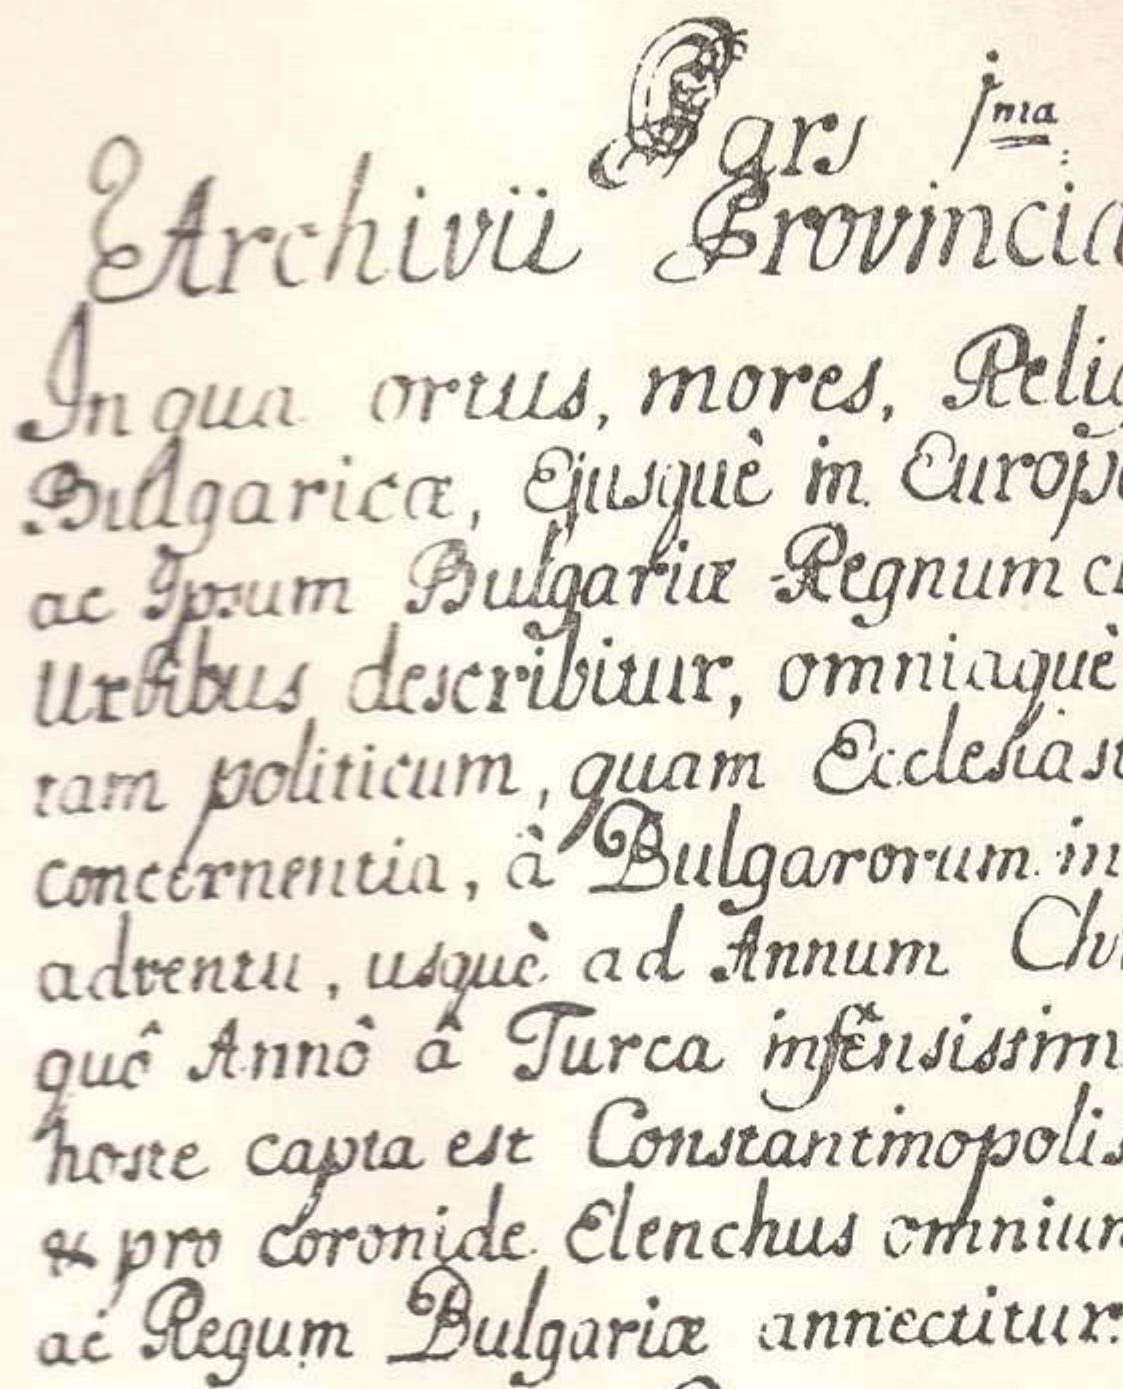 Pars Ima:
Archivii Provincia
In qua ortus, mores, Relig
Bulgaricæ, Ejusquè in Europ
ac Ipsum Bulgariæ Regnum
Urbibus describitur, omniaquè
tam politicum, quam Ecclesiast
concernentia, à Bulgarorum in
adventu, usquè ad Annum Chr
quô Annô â Turca infensissim
hoste capta est Constantinopolis
& pro coronide Elenchus omnium
ac Regum Bulgariæ annectitur.